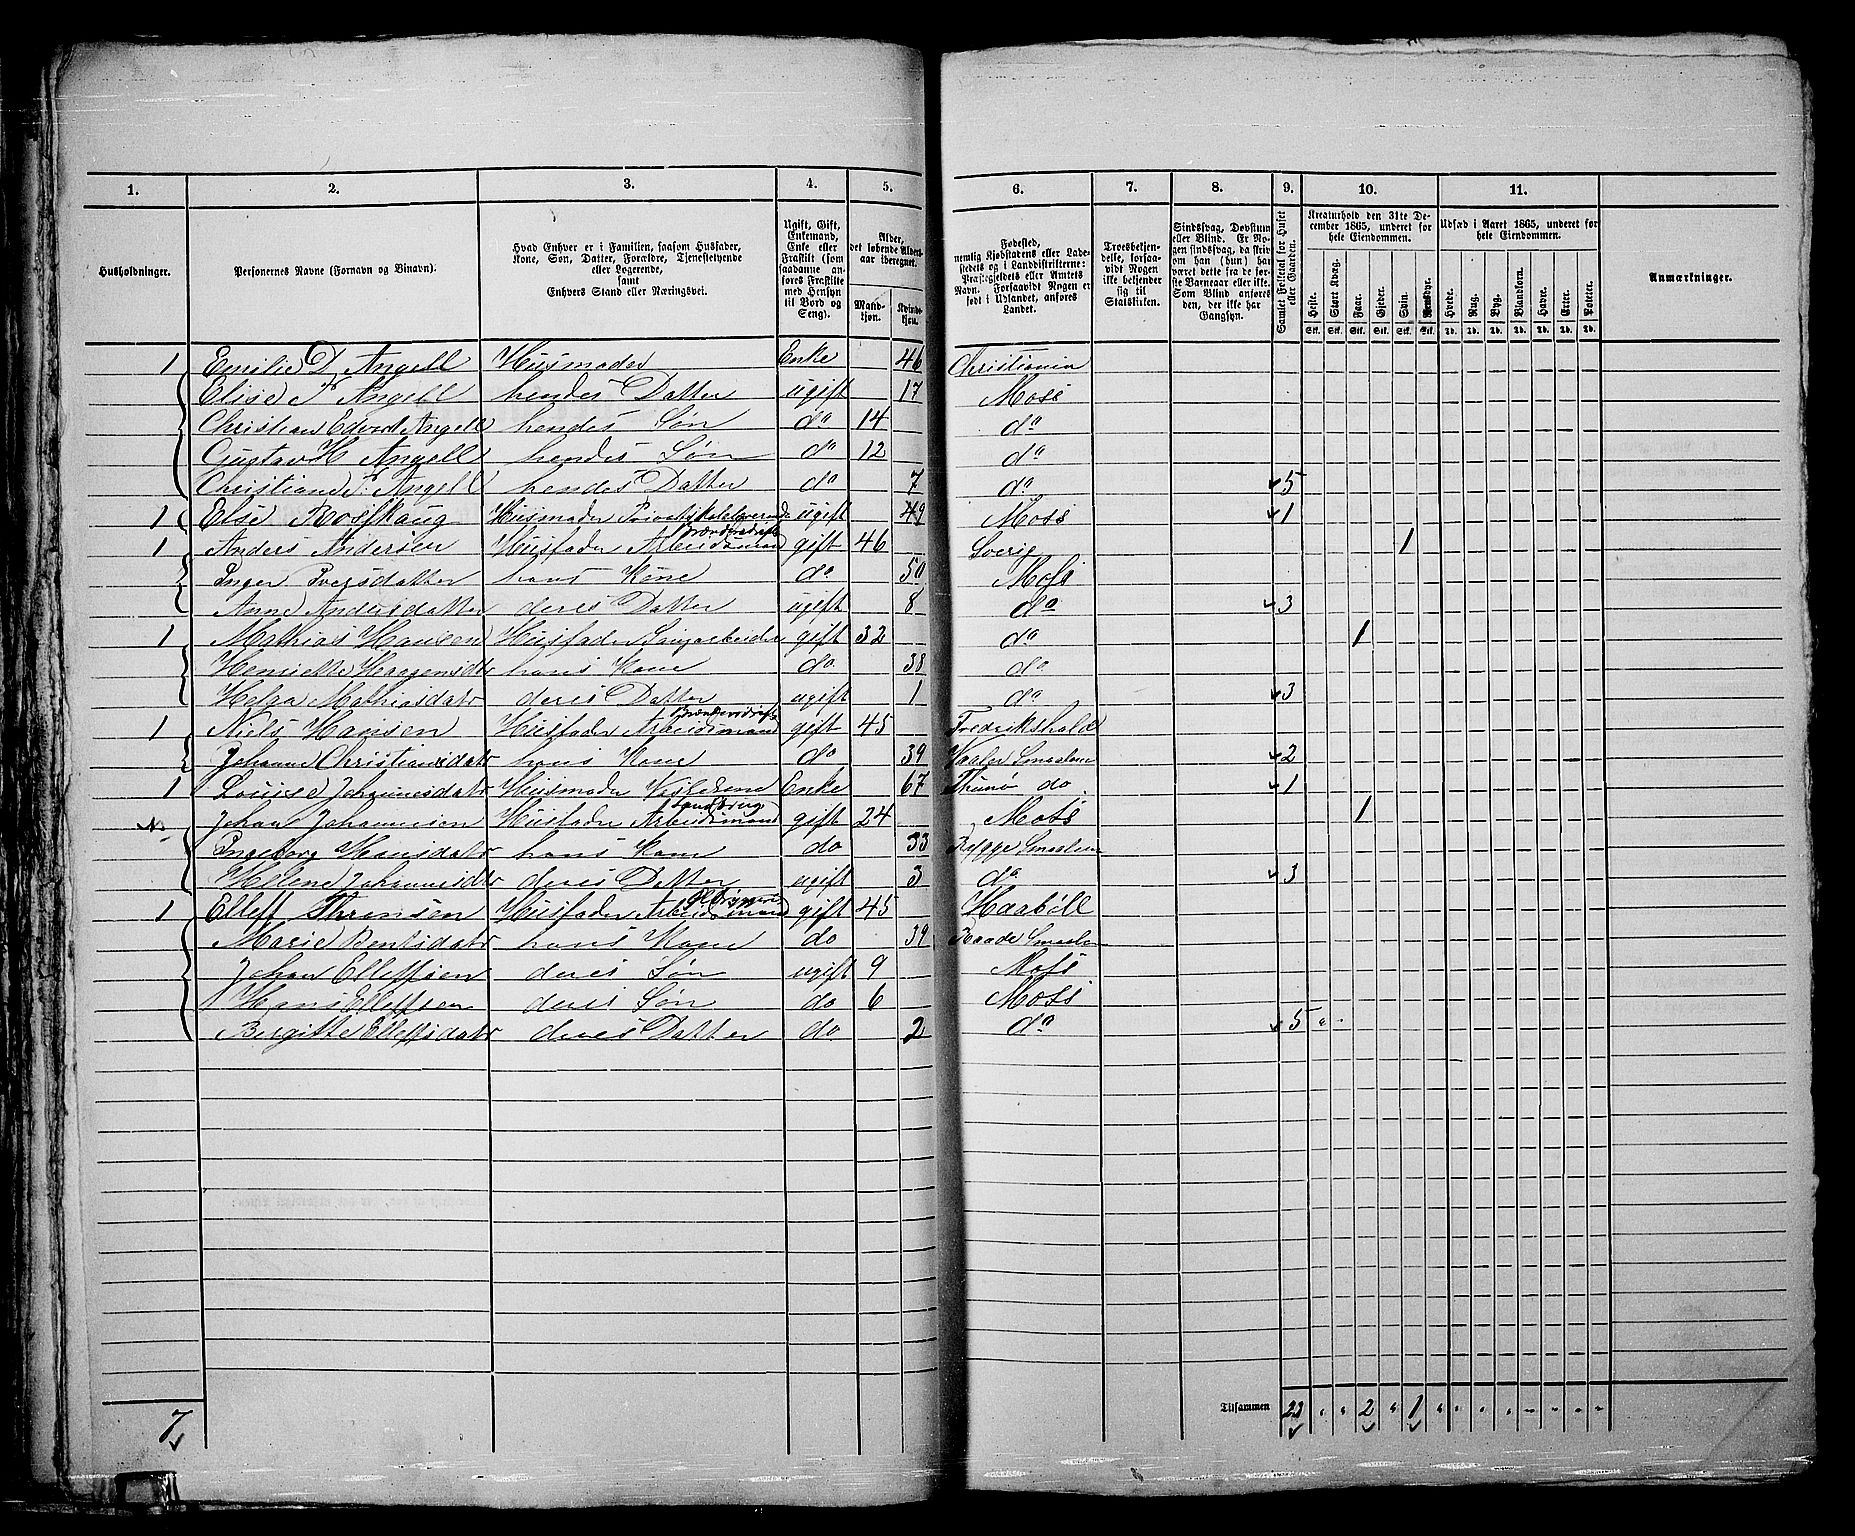 1. 2. 3. 4. 5. 6. 7. 8. 9. 10. 11.
Husholdninger.
Personernes Navne (Fornavn og Binavn).
Hvad Enhver er i Familien, saasom Husfader,
Kone, Søn, Datter, Forældre, Tjenestetyende
eller Logerende,
samt
Enhvers Stand eller Næringsvei.
Ugift, Gift,
Enkemand,
Enke eller
Fraskilt (som
saadanne an-
føres Fraskilte
med Hensyn
til Bord og
Seng).
Alder,
det løbende Alders-
aar iberegnet.
Mand-
kjøn.
Kvinde-
kjøn.
Fødested,
nemlig Kjøbstadens eller Lade-
stedets og i Landdistrikterne:
Præstegjeldets eller Amtets
Navn. Forsaavidt Nogen er
født i Udlandet, anføres
Landet.
Troesbekjen-
delse, forsaa-
vidt Nogen
ikke bekjender
sig til
Statskirken.
Sindssvag, Døvstum
eller Blind. Er No-
gen sindssvag, da skriv
om han (hun) har
været dette fra de før-
ste Barneaar eller ikke.
Som Blind anføres
den, der ikke har
Gangsyn.
Samlet Folketal for Huset
eller Gaarden.
Kreaturhold den 31te De-
cember 1865, underet for
hele Eiendommen.
Heste. Stort Kvæg. Faar. Gjeder. Svin. Rensdyr.
Stk. Stk. Stk. Stk. Stk. Stk.
Udsæd i Aaret 1865, underet for
hele Eiendommen.
Hvede. Rug. Byg. Blandkorn. Havre. Erter. Poteter.
Td. Td. Td. Td. Td. Td. Td.
Anmærkninger.
1 Emilie D Angell Husmoder Enke 46 Christiania
Elise Angell hendes Datter ugift 17 Moss
Christian Edvard Angell hendes Søn do 14 do
Gustav H Angell hendes Søn do 12 do
Christiane Angell hendes Datter do 7 do 5
1 Else Rosskaug Husmoder ugift 49 Moss 1
1 Anders Andersen Husfader Arbeidsmand gift 46 Sverig 1
Inger Iversdatter hans Kone do 50 Moss
Anne Andersdatter deres Datter ugift 8 do 3
1 Mathias Hansen Husfader Saugarbeider gift 32 do 1
Henriette Haagensdtr hans Kone do 38 do
Helga Mathiasdatr deres Datter ugift 1 do 3
1 Niels Hansen Husfader Arbeidsmand gift 45 Fredrikshald
Johanne Christiansdatr hans Kone do 39 Vaaler Smaalene 2
1 Louise Johannesdatr Husmoder Enke 67 do 1
Johan Johannesen Husfader Arbeidsmand gift 24 Moss 1
Ingeborg Hansdatr hans Kone do 33 Rygge Smaalen
Helene Johannesdtr deres Datter ugift 3 do 3
1 Elleff Husfader Arbeidsmand gift 45 Haabøll
Marie Berntsdatr hans Kone do 39 Raade Smaalen
Johan Elleffsen deres Søn ugift 9 Moss
Hans Elleffsen deres Søn do 6 Moss
Birgitte Elleffsdatr deres Datter do 2 do 5
7
Tilsammen 23 " " 2 " 1 " " " " " " " "